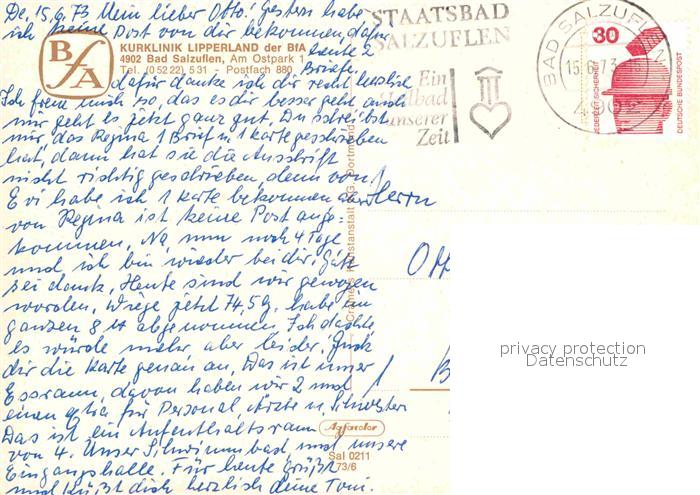 De, 15.6.73 Mein lieber Otto! Gestern habe
ich keine Post von dir bekommen, dafür
heute 2
Briefe
BfA
KURKLINIK LIPPERLAND der BfA
4902 Bad Salzuflen, Am Ostpark 1
Tel. (05222) 531 - Postfach 880
dafür danke ich dir recht herzlich
Ich freue mich so, das es dir besser geht auch
mir geht es jetzt ganz gut. Du schreibst
mir, das Regina 1 Brief u. 1 Karte geschrieben
hat, dann hat sie die Anschrift
nicht richtig geschrieben, denn von
Evi habe ich 1 Karte bekommen aber
von Regina ist keine Post ange-
kommen. Na, nun noch 4 Tage
und ich bin wieder bei dir, Gott
sei dank. Heute sind wir gewogen
worden. Wiege jetzt 74,5 habe im
ganzen 8 abgenommen. Ich dachte
es würde mehr, aber leider. Guck
dir die Karte genau an. Das ist unser
Essraum, davon haben wir 2 und
einen extra für Personal, Ärzte u. Schwestern
Das ist ein Aufenthaltsraum
von 4. Unser Schwimmbad und unsere
Eingangshalle. Für heute grüßt
und küßt dich herzlich deine Toni.
STAATSBAD
SALZUFLEN
Ein
Heilbad
unserer
Zeit
BAD SALZUFLEN
15.6.73
490
30
JEDERZEIT SICHERHEIT
DEUTSCHE BUNDESPOST
Herrn
Ott
B
Cramers Kunstanstalt KG, Dortmund
Agfacolor
Sal 0211
73/6
privacy protection
Datenschutz